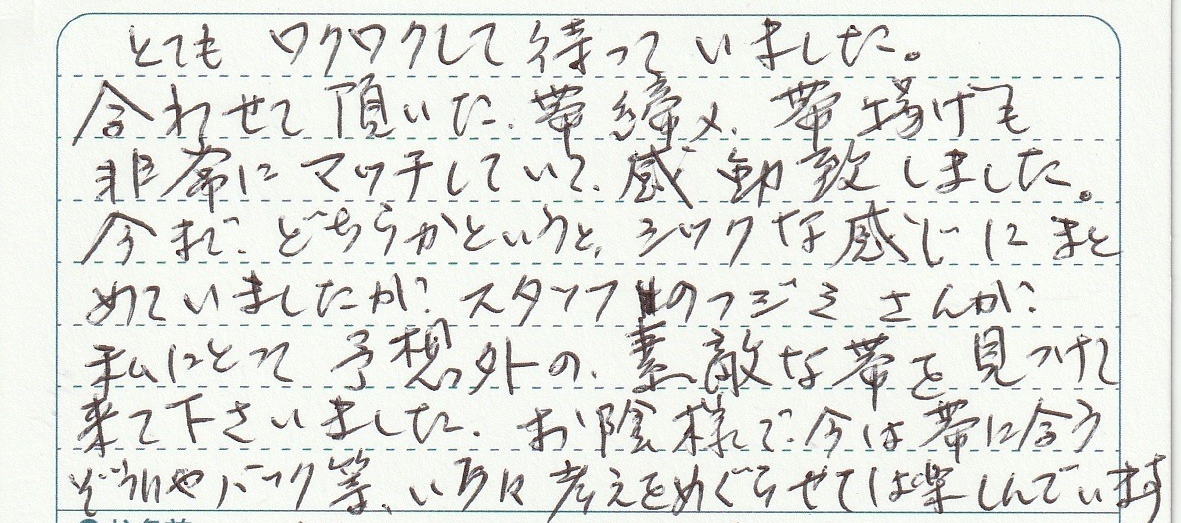 とても ワクワクして待っていました。
合わせて頂いた、帯締め、帯揚げも
非常にマッチしていて、感動致しました。
今まで、どちらかというと、シックな感じにまと
めていましたが、スタッフのフジミさんが、
私にとって予想外の、素敵な帯を見つけて
来て下さいました。お陰様で、今は帯に合う
ぞうりやバック等、いろいろ考えをめぐらせては楽しんでいます